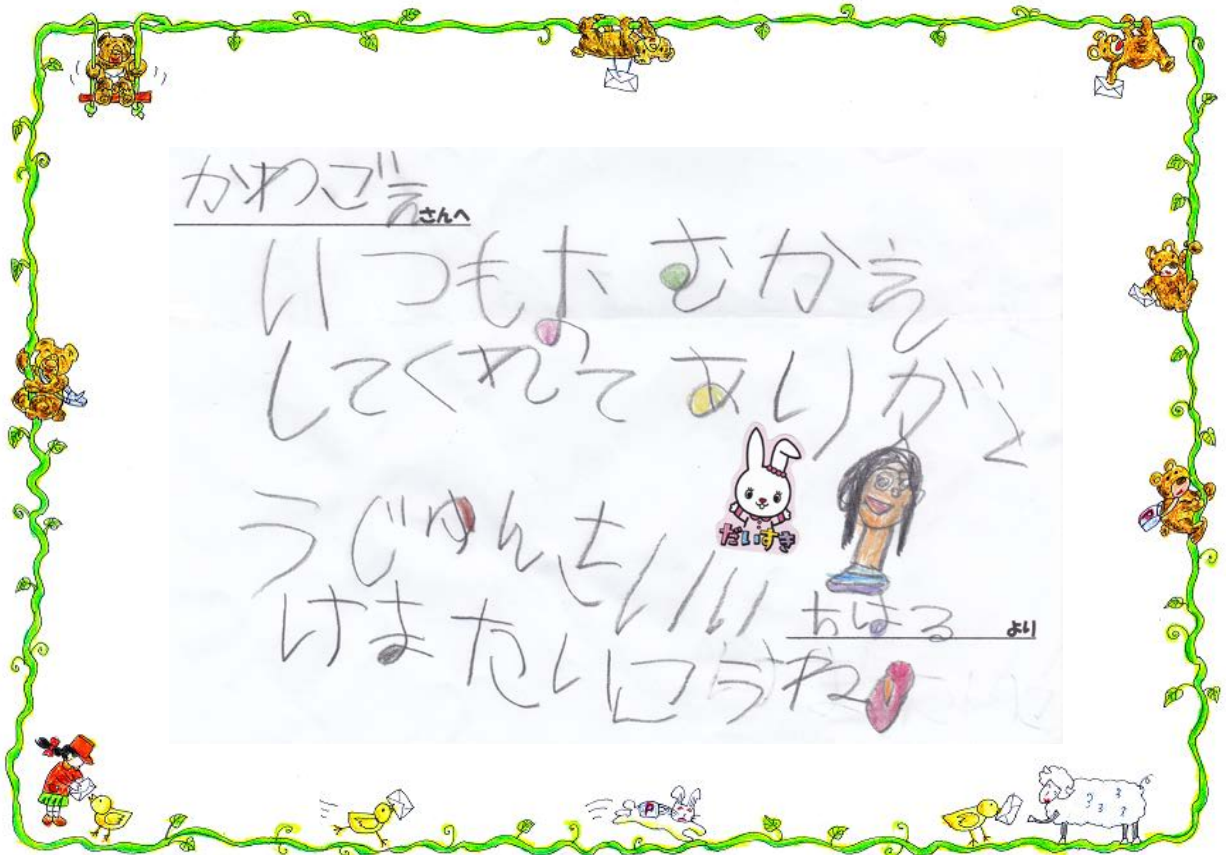 かわごえさんへ
いつもおむかえ
してくれてありがと
うじゅんさいい
けまたいこうね
だいすき
ちはるより